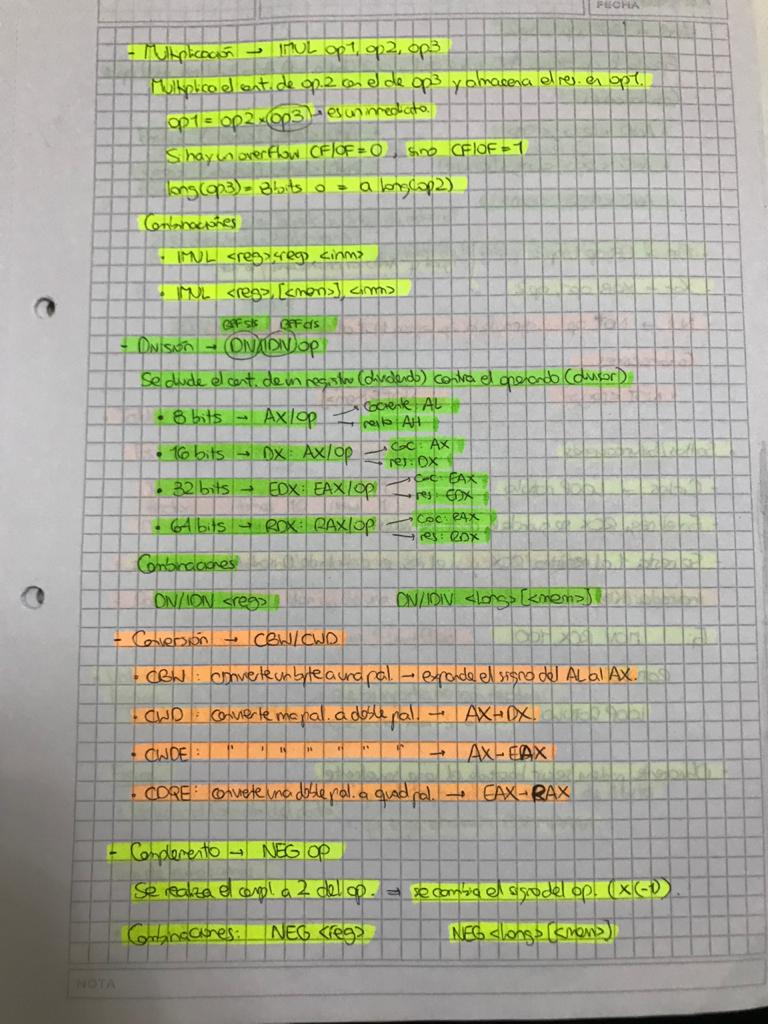 FECHA
- Multiplicación → IMUL op1, op2, op3
Multiplica el cont. de op.2 con el de op3 y almacena el res. en op1.
op1 = op2 × op3 → es un inmediato.
Si hay un overflow CF/OF = 0, sino CF/OF = 1
long(op3) = 8 bits o = a long(op2)
Combinaciones
• IMUL <reg>, <reg>, <inm>
• IMUL <reg>, [<mem>], <inm>
BPF s/s BPF c/s
- División → DIV/IDIV op
Se divide el cont. de un registro (dividendo) contra el operando (divisor)
• 8 bits → AX/op → cociente AL
→ resto AH
• 16 bits → DX: AX/op → coc: AX
→ res: DX
• 32 bits → EDX: EAX/op → coc: EAX
→ res: EDX
• 64 bits → RDX: RAX/op → coc: RAX
→ res: RDX
Combinaciones
DIV/IDIV <reg> DIV/IDIV <long> [<mem>]
- Conversión → CBW/CWD
• CBW: convierte un byte a una pal. → expande el signo del AL al AX.
• CWD: convierte una pal. a doble pal. → AX→DX.
• CWDE: " " " " " " " → AX→EAX
• CDQE: convierte una doble pal. a quad pal. → EAX→RAX
- Complemento → NEG op
Se realiza el compl a 2 del op. → se cambia el signo del op. (x(-1)).
Combinaciones: NEG <reg> NEG <long> [<mem>]
NOTA